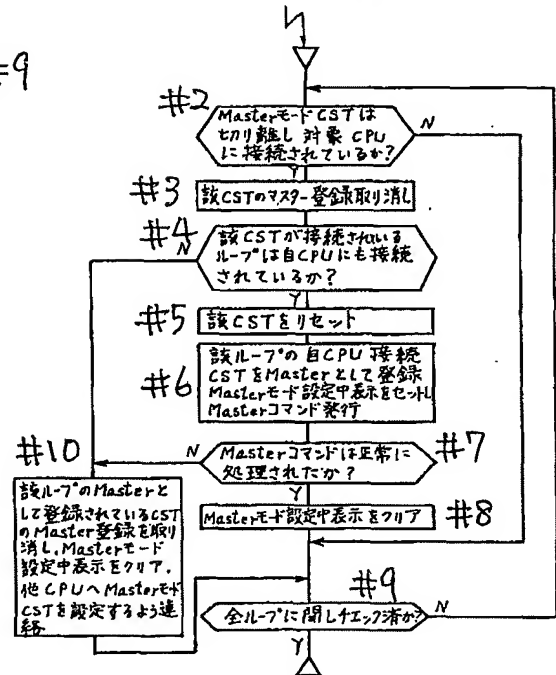 #9
#2
MasterモードCSTは
切り離し対象CPU
に接続されているか?
N
Y
#3
該CSTのマスター登録取り消し
#4
該CSTが接続されている
ループは自CPUにも接続
されているか?
N
Y
#5
該CSTをリセット
#6
該ループの自CPU接続
CSTをMasterとして登録
Masterモード設定中表示をセットし
Masterコマンド発行
#7
Masterコマンドは正常に
処理されたか?
N
Y
#8
Masterモード設定中表示をクリア
#10
該ループのMasterと
して登録されているCST
のMaster登録を取り
消し、Masterモード
設定中表示をクリア.
他CPUへMasterモード
CSTを設定するよう連
絡
#9
全ループに関しチェック済か?
N
Y